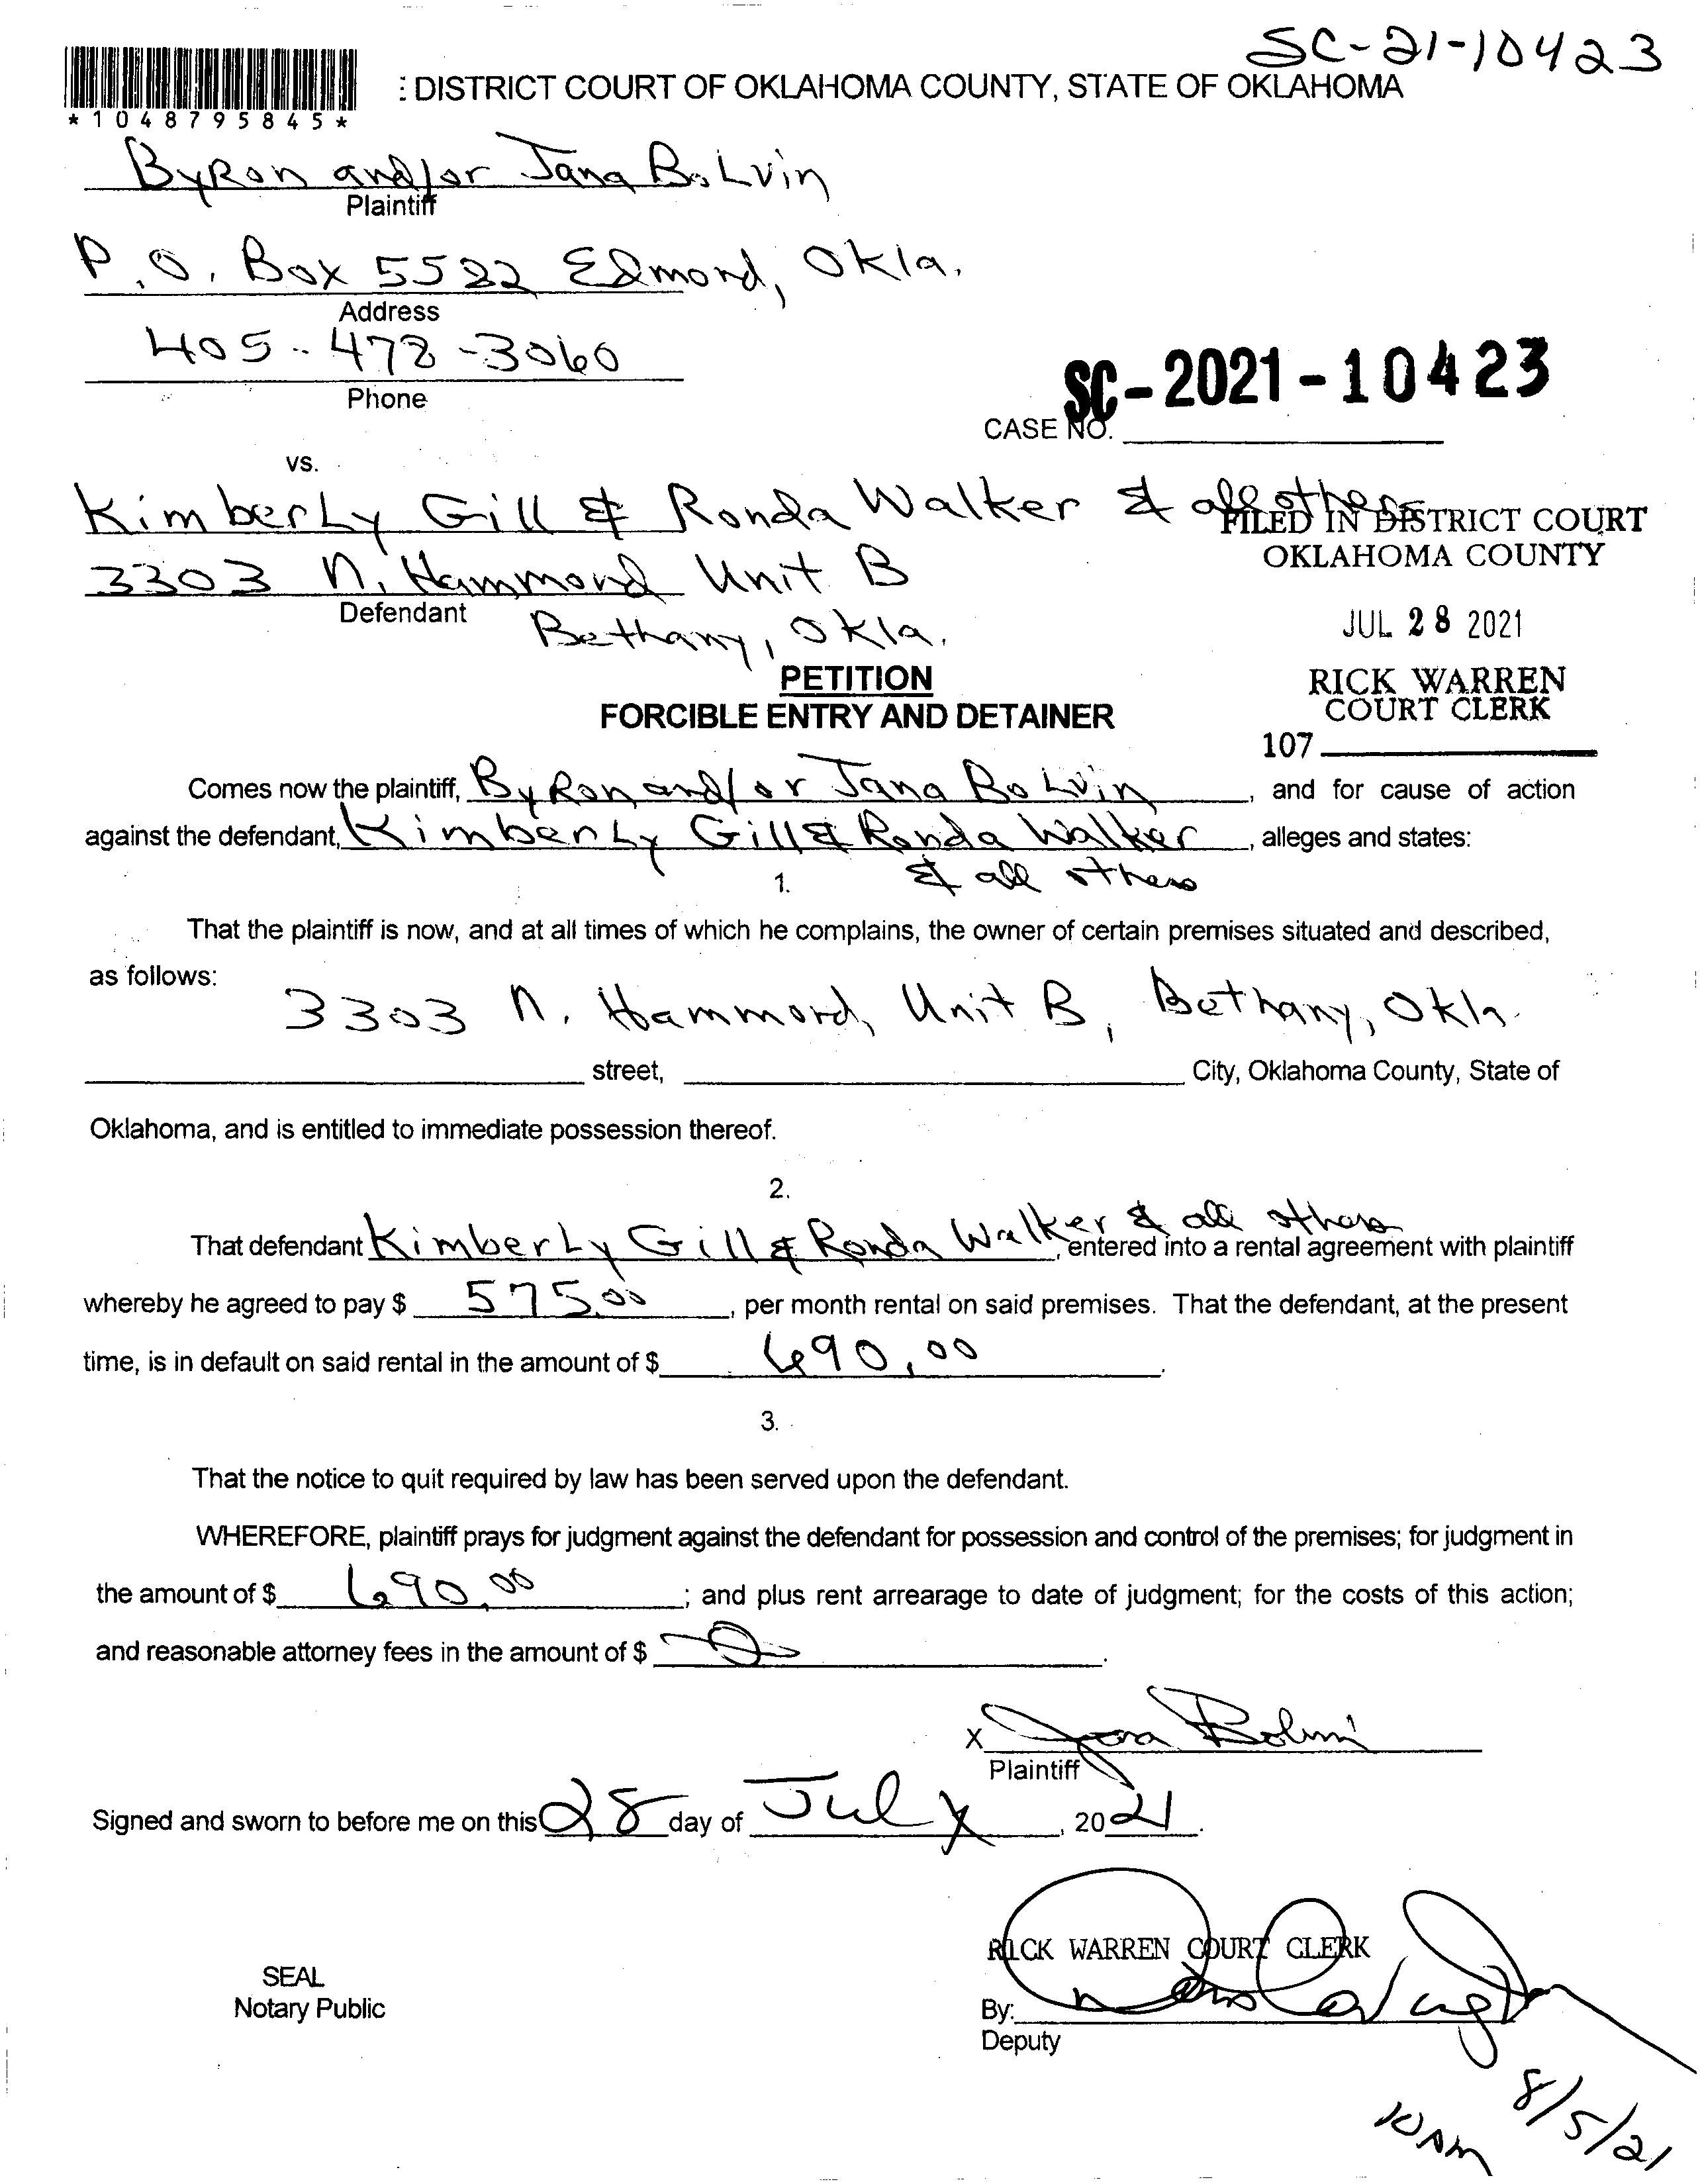 SC-21-10423
*1048795845*
: DISTRICT COURT OF OKLAHOMA COUNTY, STATE OF OKLAHOMA
ByRon and/or Jana BoLvin
Plaintiff
P.O. Box 5522 Edmond, Okla.
Address
405-478-3060
Phone
SC-2021-10423
CASE NO.
vs.
KimberLy Gill & Ronda Walker & all others
FILED IN DISTRICT COURT
OKLAHOMA COUNTY
3303 N. Hammond Unit B
Defendant
Bethany, Okla.
JUL 28 2021
PETITION
FORCIBLE ENTRY AND DETAINER
RICK WARREN
COURT CLERK
107
Comes now the plaintiff, ByRon and/or Jana BoLvin, and for cause of action
against the defendant, KimberLy Gill & Ronda Walker, alleges and states:
& all others
1.
That the plaintiff is now, and at all times of which he complains, the owner of certain premises situated and described,
as follows:
3303 N. Hammond, Unit B, Bethany, Okla.
street, City, Oklahoma County, State of
Oklahoma, and is entitled to immediate possession thereof.
2.
That defendant KimberLy Gill & Ronda Walker & all others, entered into a rental agreement with plaintiff
whereby he agreed to pay $ 575.00, per month rental on said premises. That the defendant, at the present
time, is in default on said rental in the amount of $ 690.00.
3.
That the notice to quit required by law has been served upon the defendant.
WHEREFORE, plaintiff prays for judgment against the defendant for possession and control of the premises; for judgment in
the amount of $ 690.00; and plus rent arrearage to date of judgment; for the costs of this action;
and reasonable attorney fees in the amount of $ 0.
X Jana Bolvin
Plaintiff
Signed and sworn to before me on this 28 day of July, 2021.
RICK WARREN COURT CLERK
SEAL
Notary Public
By:
Deputy
8/5/21
10 AM